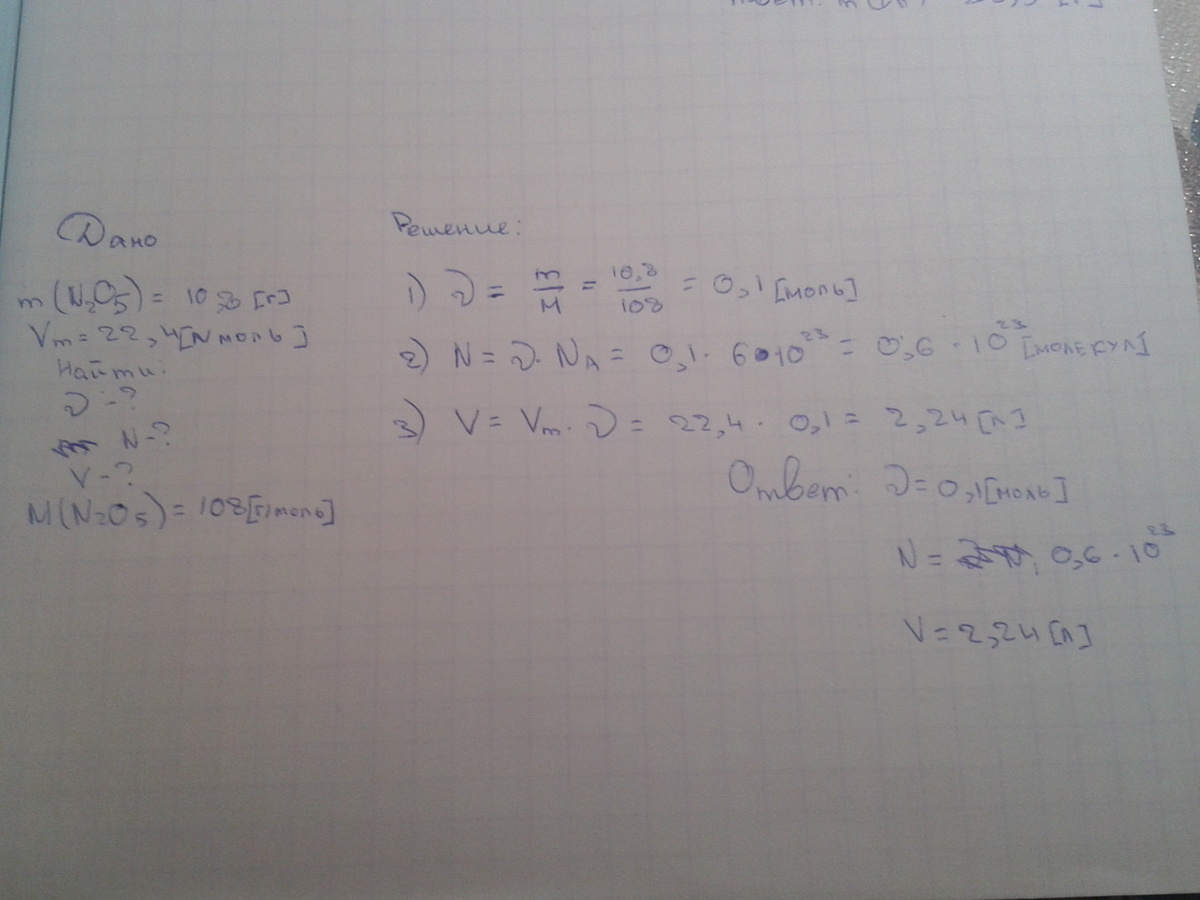 Дано
m(N₂O₅) = 10,8 [г]
Vm = 22,4 [л/моль]
Найти:
ν - ?
N - ?
V - ?
M(N₂O₅) = 108 [г/моль]
Решение:
1) ν = m/M = 10,8/108 = 0,1 [моль]
2) N = ν · N_A = 0,1 · 6 · 10²³ = 0,6 · 10²³ [молекул]
3) V = Vm · ν = 22,4 · 0,1 = 2,24 [л]
Ответ: ν = 0,1 [моль]
N = 0,6 · 10²³
V = 2,24 [л]